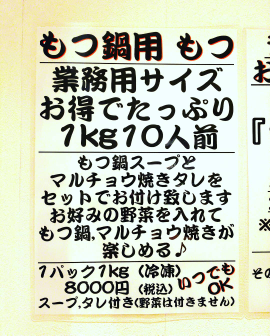 もつ鍋用 もつ
業務用サイズ
お得でたっぷり
1kg10人前
もつ鍋スープと
マルチョウ焼きタレを
セットでお付け致します
お好みの野菜を入れて
もつ鍋,マルチョウ焼きが
楽しめる♪
1パック1kg (冷凍)
8000円 (税込)
いつでも
OK
スープ,タレ付き(野菜は付きません)